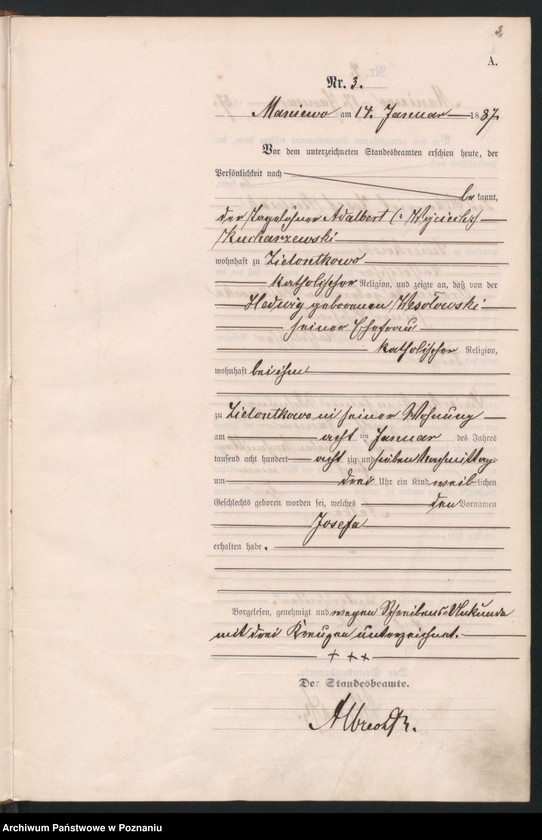 2
A.
Nr. 3.
Maniewo am 14. Januar 1887.
Vor dem unterzeichneten Standesbeamten erschien heute, der
Persönlichkeit nach
bekannt,
der Tagelöhner Adalbert (: Wojciech :)
Kucharzewski
wohnhaft zu Zielontkowo
katholischer Religion, und zeigte an, daß von der
Hedwig geborenen Wesołowski
seiner Ehefrau
katholischer Religion,
wohnhaft bei ihm
zu Zielontkowo in seiner Wohnung
am acht ten Januar des Jahres
tausend acht hundert acht zig und sieben Nachmittag
um drei Uhr ein Kind weiblichen
Geschlechts geboren worden sei, welches den Vornamen
Josefa
erhalten habe.
Vorgelesen, genehmigt und wegen Schreibens Unkunde
mit drei Kreuzen unterzeichnet.
+ + +
Der Standesbeamte.
Albrecht.
Archiwum Państwowe w Poznaniu